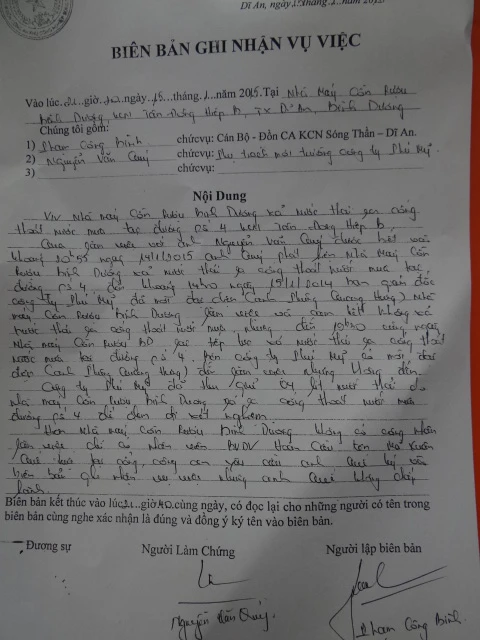 Dĩ An, ngày 15 tháng 1 năm 2015
BIÊN BẢN GHI NHẬN VỤ VIỆC
Vào lúc 21 giờ 20 ngày 15 tháng 1 năm 2015. Tại Nhà Máy Cồn Rượu
Bình Dương, KCN Tân Đông Hiệp B, TX Dĩ An, Bình Dương
Chúng tôi gồm:
1) Phạm Công Bình chứcvụ: Cán Bộ - Đồn CA KCN Sóng Thần – Dĩ An.
2) Nguyễn Văn Quý chứcvụ: Phụ trách môi trường công ty Phú Mỹ
3) chứcvụ:
Nội Dung
V/v Nhà máy Cồn Rượu Bình Dương xả nước thải ra cống
thoát nước mưa tại đường số 4 KCN Tân Đông Hiệp B
Qua làm việc với anh Nguyễn Văn Quý được biết vào
khoảng 10h55 ngày 14/1/2015 anh Quý phát hiện Nhà Máy Cồn
Rượu Bình Dương xả nước thải ra cống thoát nước mưa tại
đường số 4, đến khoảng 14h20 ngày ban giám đốc
công ty Phú Mỹ đã mời đại diện (anh Phùng Quang Hưng) Nhà
máy Cồn Rượu Bình Dương làm việc và cam kết không xả
nước thải ra cống thoát nước mưa, nhưng đến cùng ngày
Nhà máy Cồn Rượu BD lại tiếp tục xả nước thải ra cống thoát
nước mưa tại đường số 4. Nên công ty Phú Mỹ có mời đại
diện (anh Phùng Quang Hưng) đến làm việc nhưng không đến
Công ty Phú Mỹ đã thu giữ lít nước thải do
nhà máy Cồn Rượu Bình Dương xả ra cống thoát nước mưa
đường số 4 để đem đi xét nghiệm
Hiện Nhà máy Cồn Rượu Bình Dương không có công nhân
làm việc chỉ có nhân viên BVDV Hoàn Cầu tên Mai Xuân
Quí trực tại cổng, công an yêu cầu anh Quí ký vào
biên bản ghi nhận vụ việc nhưng anh Quí không chấp
hành.
Biên bản kết thúc vào lúc 21 giờ 40 cùng ngày, có đọc lại cho những người có tên trong
biên bản cùng nghe xác nhận là đúng và đồng ý ký tên vào biên bản.
Đương sự Người Làm Chứng Người lập biên bản
Nguyễn Văn Quý Phạm Công Bình